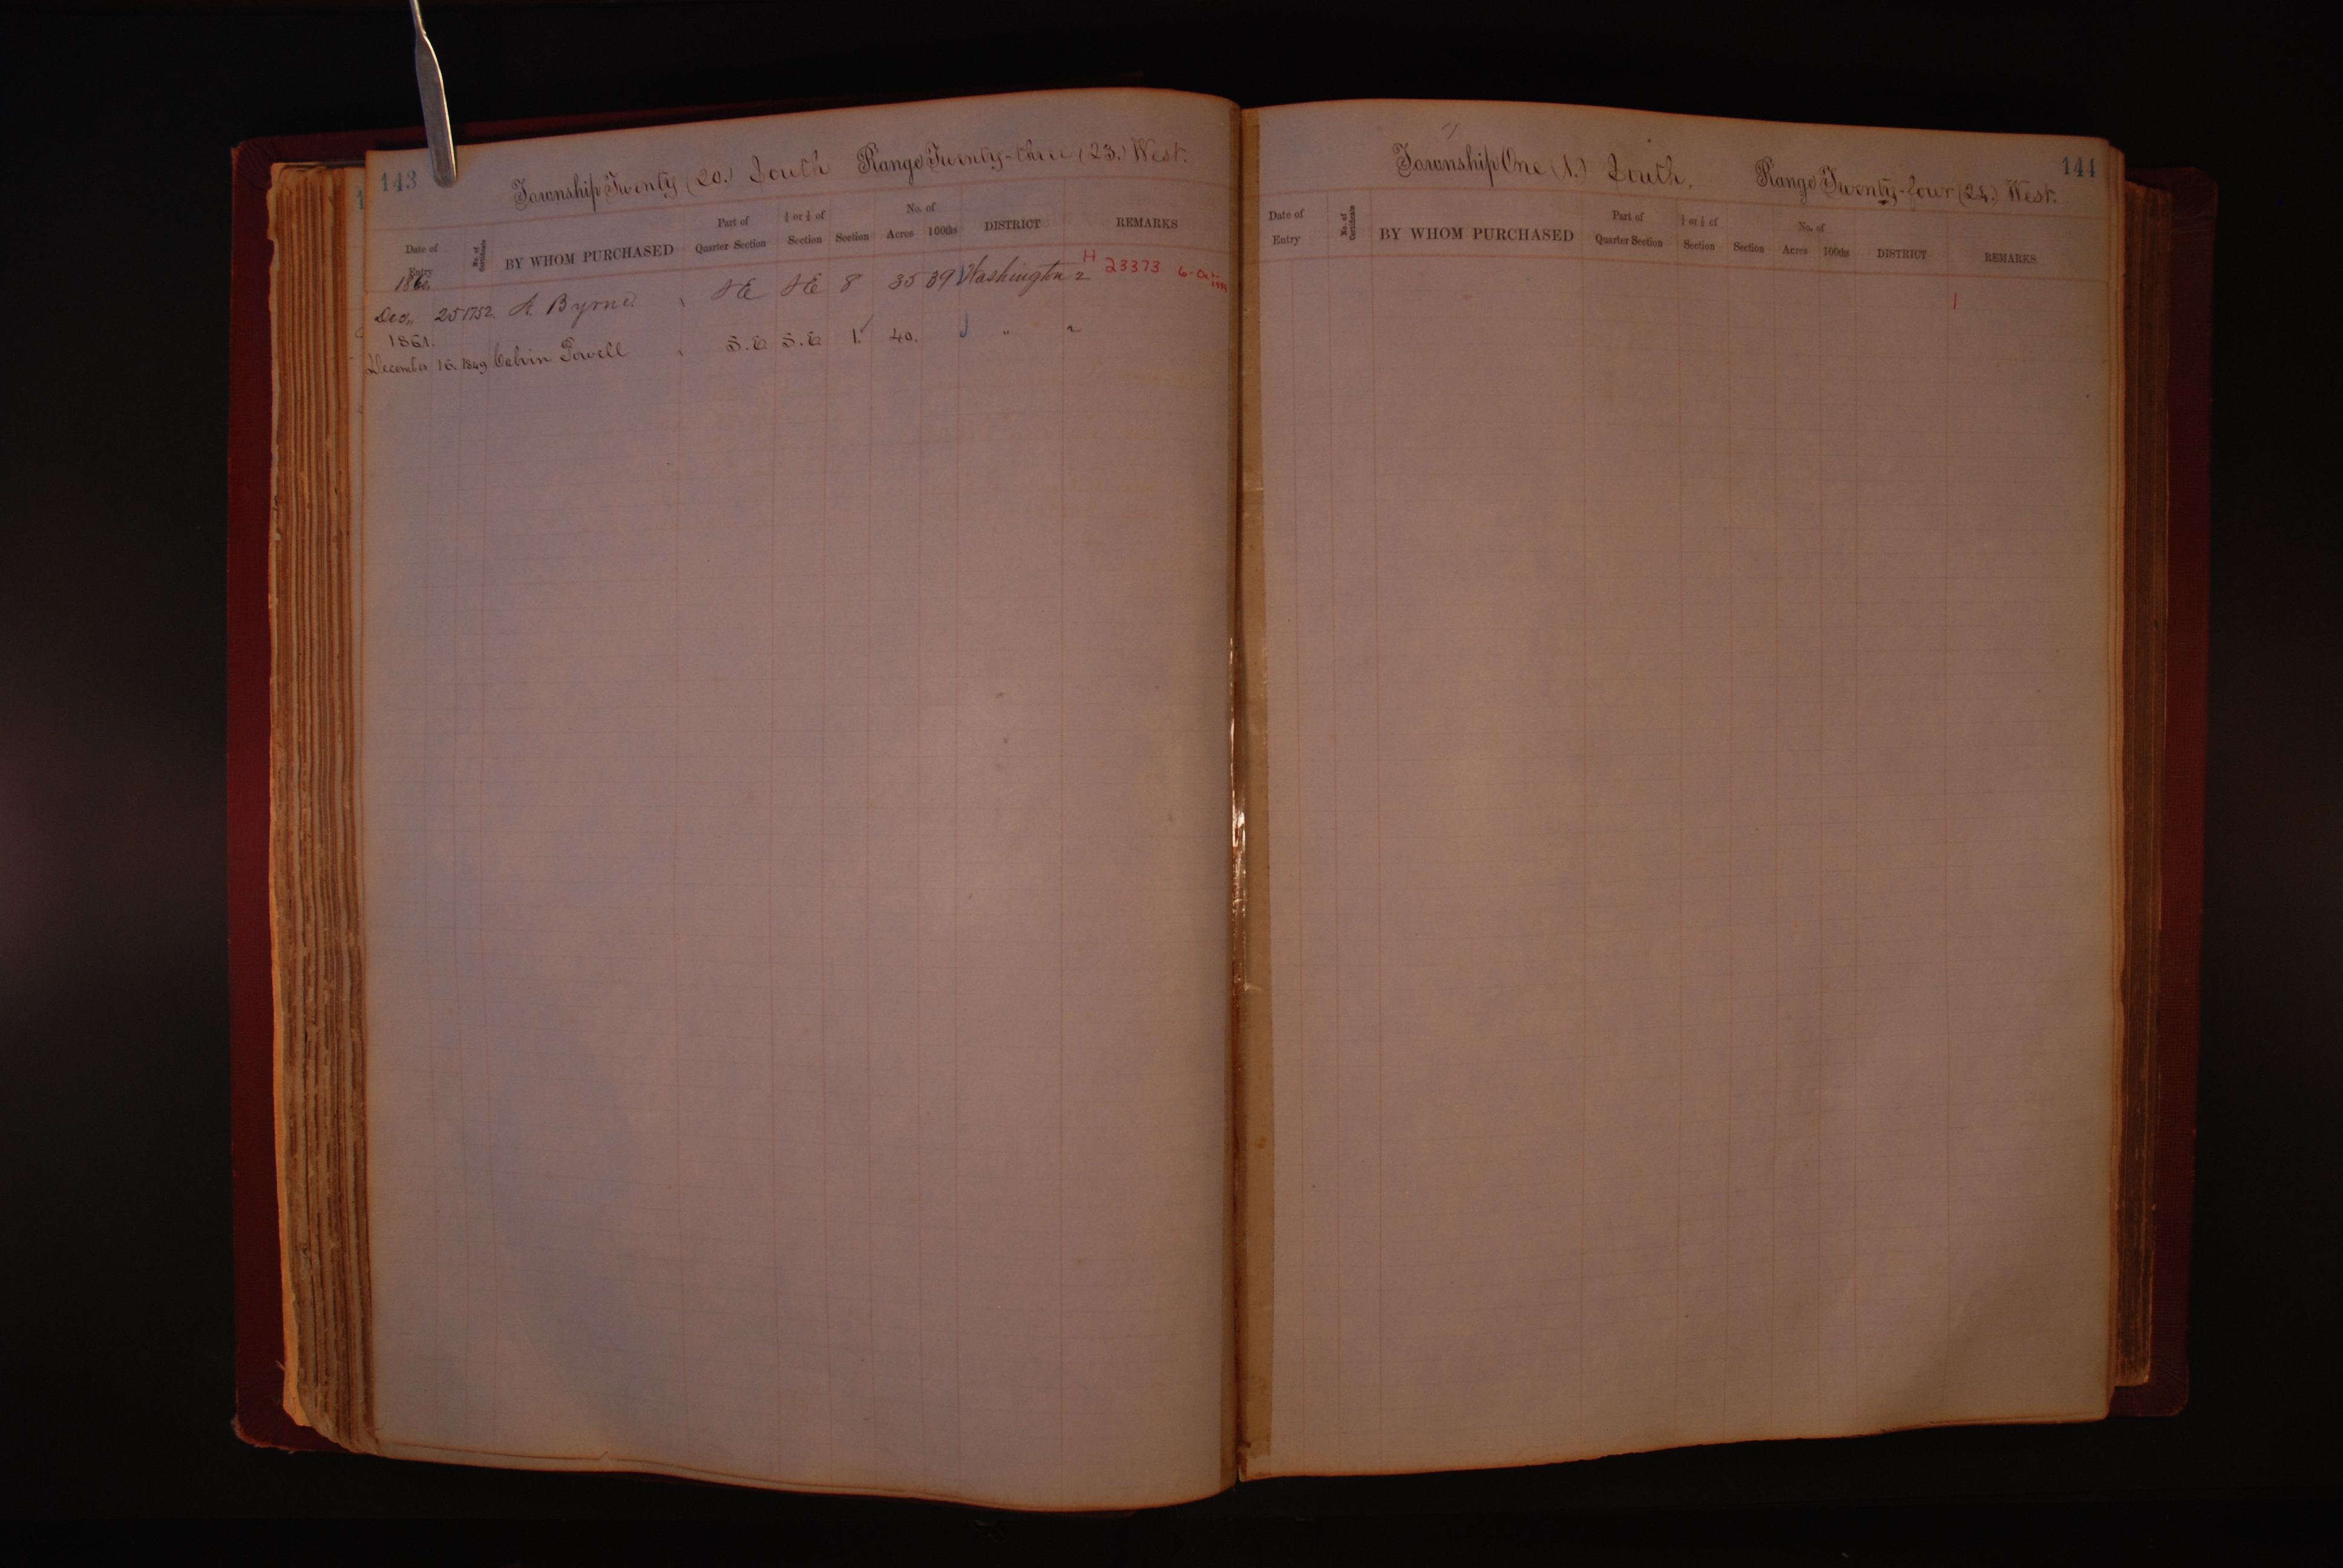 143
Township Twenty (20.) South Range Twenty-three (23.) West.
Date of Entry No. of Certificate BY WHOM PURCHASED Part of Quarter Section ½ or ¼ of Section Section No. of Acres 100ths DISTRICT REMARKS
186
Dec,, 25 1752. A Byrne 8 35 39 Washington 2 H 23373 6-Oct-
1861.
December 16. 1849 Calvin Powell S.E S.E 1. 40. " "
144
Township One (1.) South, Range Twenty-four (24.) West.
Date of Entry No. of Certificate BY WHOM PURCHASED Part of Quarter Section ½ or ¼ of Section Section No. of Acres 100ths DISTRICT REMARKS